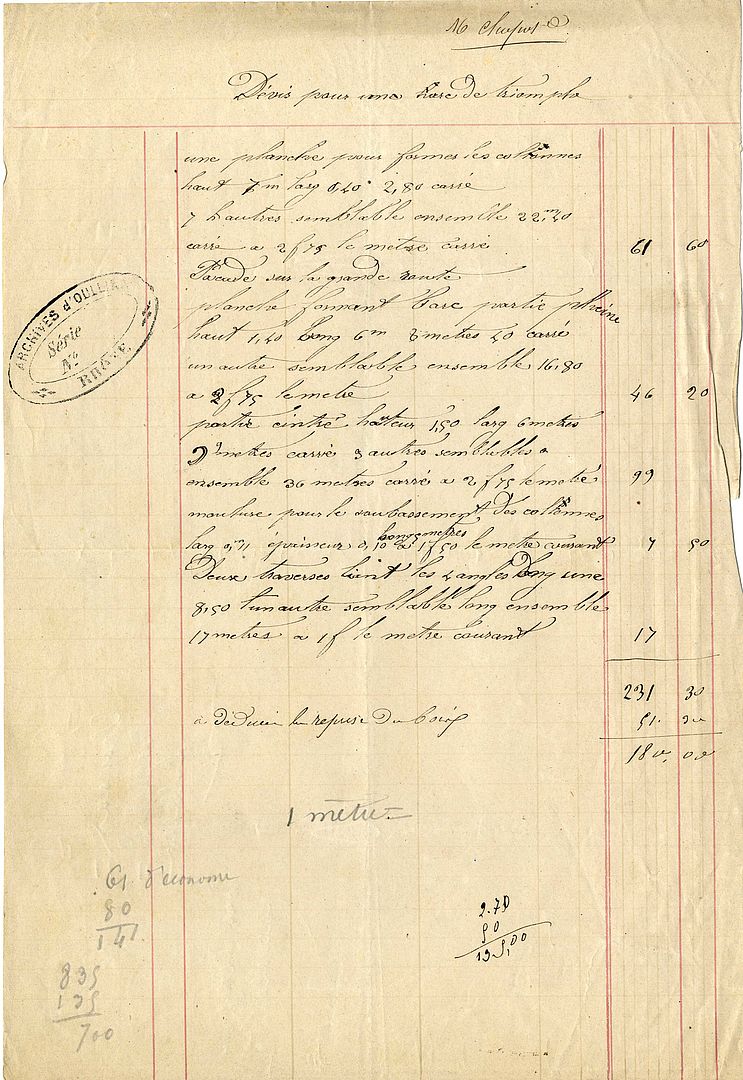 Dévis pour una harc de triomphe
une planche pour formes les colonnes
haut 7m larg 0,40 2,80 carré
7 hautres semblable ensemble 22m,40
carré a 2f75 le metre carré 61 60
Facade sur la grande route
planche formant l'arc partie pleine
haut 1,40 long 6m 8 metres 40 carré
un autre semblable ensemble 16,80
a 2f75 le metre 46 20
partie cintré hauteur 1,50 larg 6 metres
9 metres carré 3 autres semblables
ensemble 36 metres carré a 2f75 le metre 99
moulure pour le soubassement des colonnes
larg 0,11 épaisseur 0,10 a 1f50 le metre courant 7 50
Deux traverses les 4 angles long une
8,50 l'un autre semblable long ensemble
17 metres a 1f le metre courant 17
231 30
a déduire la reprise du bois 51. 30
180, 00
1 mètre
61 d'économie
80
141
835
135
700
2.70
50
135,00
ARCHIVES d'OULLINS
Série
No
RHÔNE